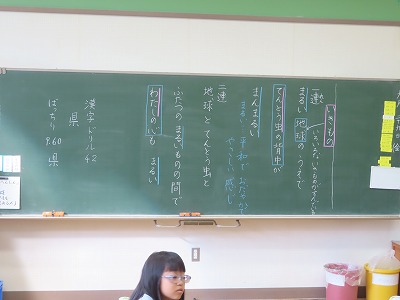 いきもの
一連
まるい 地球のうえで
てんとう虫の背中が
まんまるい
まるい 平和で おだやかで
やさしい感じ
二連
地球と てんとう虫と
ふたつの まるいものの間で
わたしの心も まるい
漢字ドリル42
県
ばっちり P.60 県